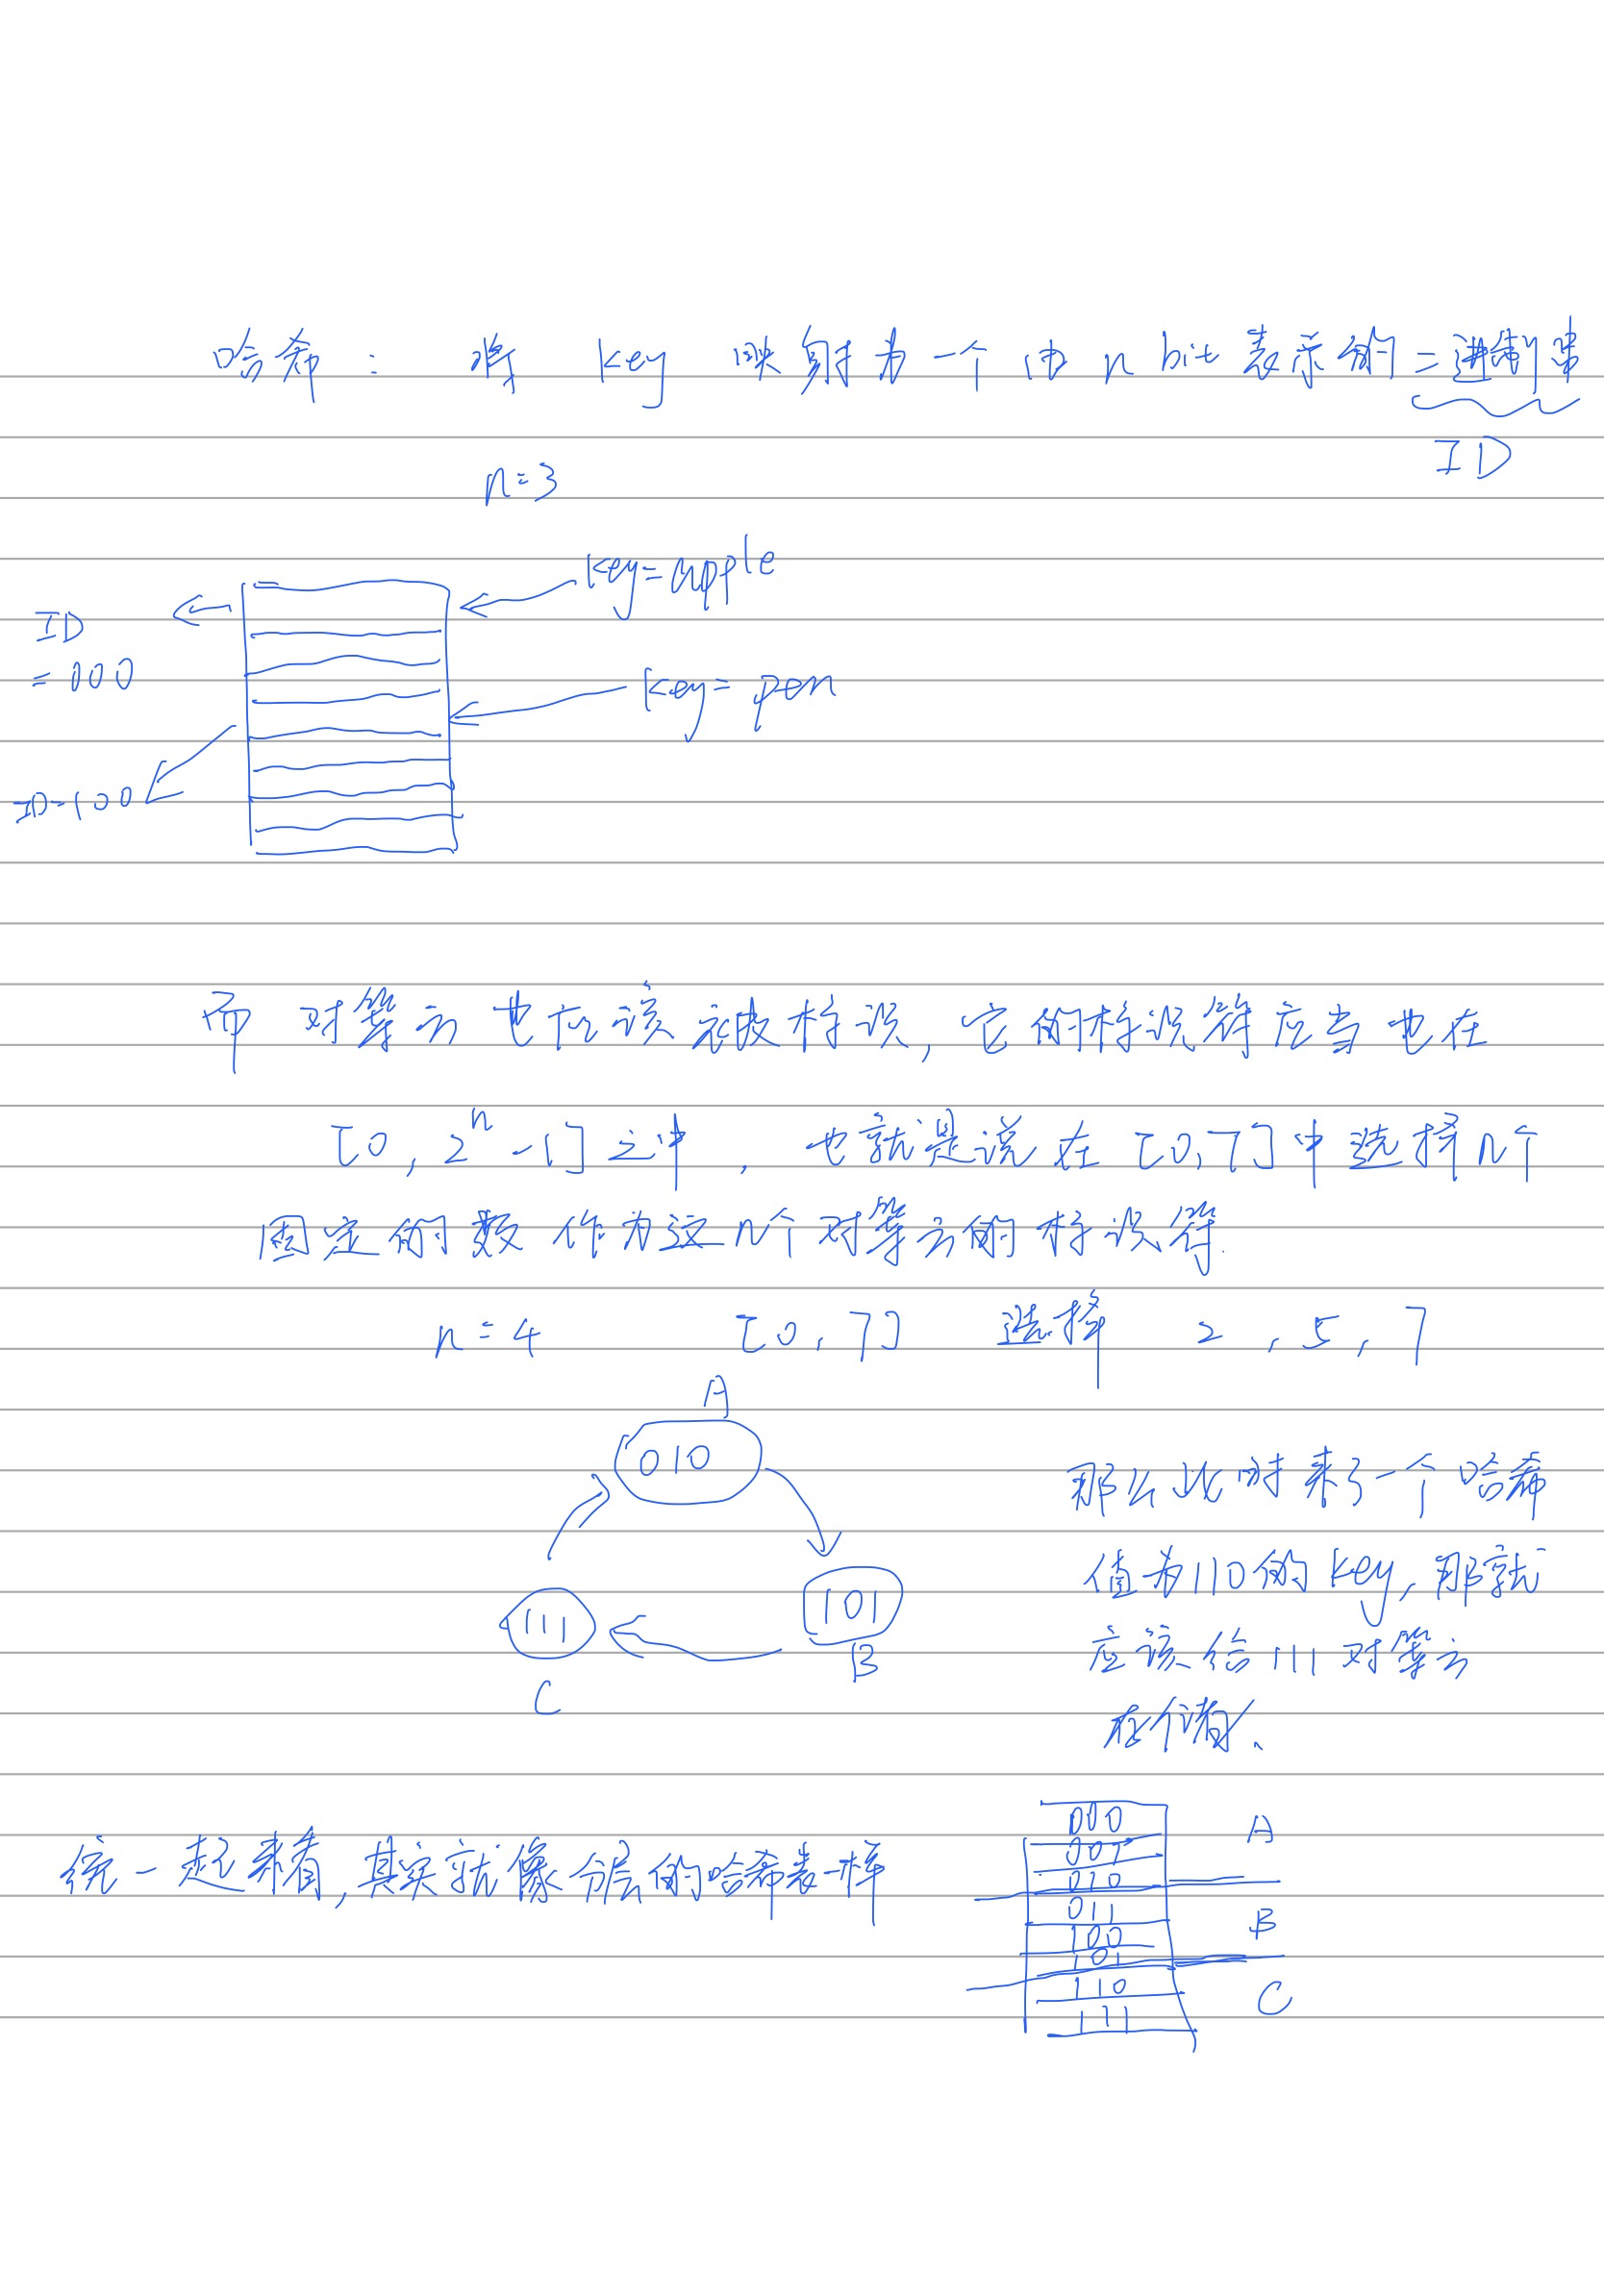 哈希： 将 key 映射为一个由 n bit 表示的二进制串
ID
n=3
key=apple
ID
=000
key=pen
ID=100
而对等方也应该被标识，它的标识符应当也在
[0, 2ⁿ-1]之中， 也就是说在[0,7]中选择n个
固定的数作为这n个对等方的标识符.
n=4 [0,7] 选择 2,5,7
A
010
那么此时来了一个哈希
值为110的key,那就
应该给111对等方
存储、
111
101
B
C
统一起来看,其实就像分层的哈希表一样
000
001
010
011
100
101
110
111
A
B
C